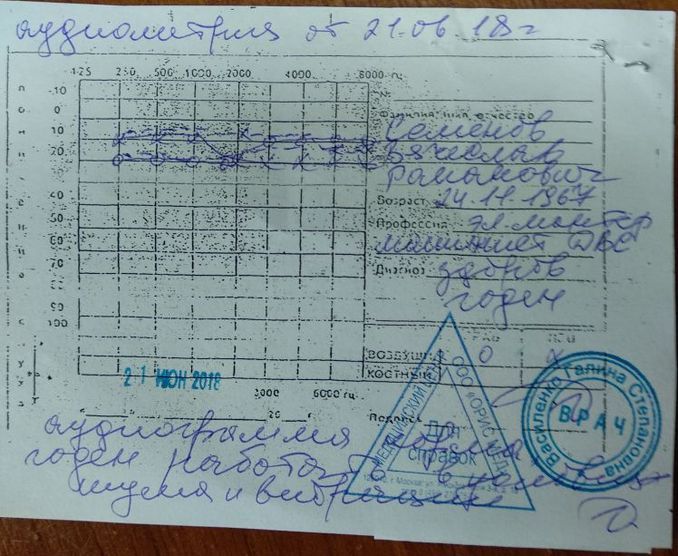 аудиометрия от 21.06 18г
125 250 500 1000 2000 4000 8000 гц
-10
0
10
20
40
50
60
70
90
100
Фамилия, имя, отчество
Семенов
Вячеслав
Романович
Возраст 24.11.1967
Профессия эл.монтер
машинист ДВС
Диагноз здоров
годен
ВОЗДУШН. О х
КОСТНЫЙ
21 ИЮН 2018
3000 6000 гц
20
Подпись
аудиограмма норма
годен работать в условиях
шума и вибрации
МЕДИЦИНСКИЙ ЦЕНТР
ООО «ОРИС МЕД»
Для
справок
Василенко Галина Степановна
ВРАЧ